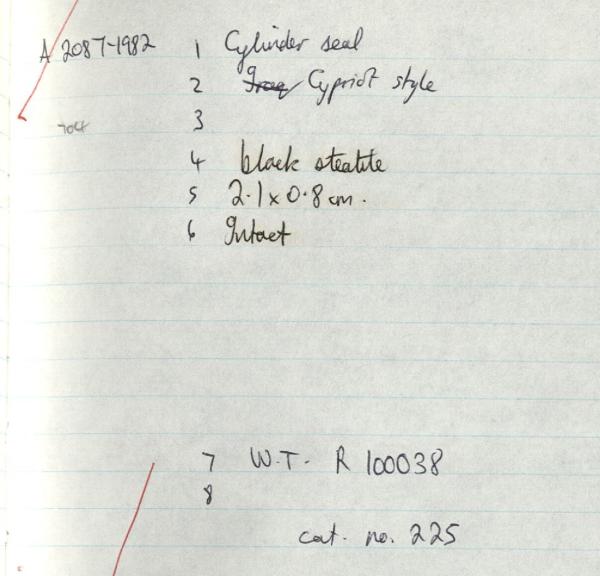 A 2087-1982 1 Cylinder seal
2 Iraq Cypriot style
704 3
4 black steatite
5 2.1 x 0.8 cm.
6 Intact
7 W.T. R 100038
8
cat. no. 225